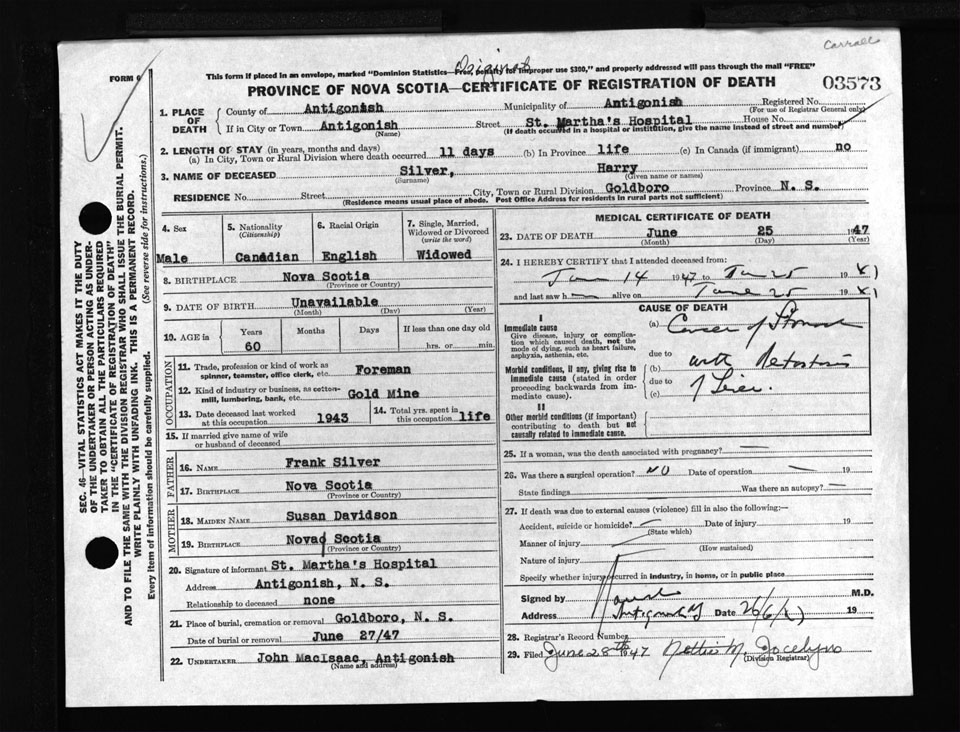 Carroll
Original
FORM 6
This form if placed in an envelope, marked "Dominion Statistics—Free, penalty for improper use $300," and properly addressed will pass through the mail "FREE"
PROVINCE OF NOVA SCOTIA—CERTIFICATE OF REGISTRATION OF DEATH
03573
1. PLACE OF DEATH
County of Antigonish Municipality of Antigonish Registered No.
(For use of Registrar General only)
If in City or Town Antigonish Street St. Martha's Hospital House No.
(Name) (If death occurred in a hospital or institution, give the name instead of street and number)
2. LENGTH OF STAY (in years, months and days)
(a) In City, Town or Rural Division where death occurred 11 days (b) In Province life (c) In Canada (if immigrant) no
3. NAME OF DECEASED Silver, Harry
(Surname) (Given name or names)
RESIDENCE No. Street City, Town or Rural Division Goldboro Province N. S.
(Residence means usual place of abode. Post Office Address for residents in rural parts not sufficient)
4. Sex
Male
5. Nationality
(Citizenship)
Canadian
6. Racial Origin
English
7. Single, Married, Widowed or Divorced
(write the word)
Widowed
8. BIRTHPLACE Nova Scotia
(Province or Country)
9. DATE OF BIRTH Unavailable
(Month) (Day) (Year)
10. AGE in
Years Months Days If less than one day old
60 hrs. or min.
OCCUPATION
11. Trade, profession or kind of work as spinner, teamster, office clerk, etc. Foreman
12. Kind of industry or business, as cotton-mill, lumbering, bank, etc. Gold Mine
13. Date deceased last worked at this occupation 1943
14. Total yrs. spent in this occupation life
15. If married give name of wife or husband of deceased
FATHER
16. NAME Frank Silver
17. BIRTHPLACE Nova Scotia
(Province or Country)
MOTHER
18. MAIDEN NAME Susan Davidson
19. BIRTHPLACE Nova Scotia
(Province or Country)
20. Signature of informant St. Martha's Hospital
Address Antigonish, N. S.
Relationship to deceased none
21. Place of burial, cremation or removal Goldboro, N. S.
Date of burial or removal June 27/47
22. UNDERTAKER John MacIsaac, Antigonish
(Name and address)
MEDICAL CERTIFICATE OF DEATH
23. DATE OF DEATH June 25 1947
(Month) (Day) (Year)
24. I HEREBY CERTIFY that I attended deceased from:
June 14 1947 to June 25 1947
and last saw h alive on June 25 1947
CAUSE OF DEATH
I
Immediate cause
Give disease, injury or complication which caused death, not the mode of dying, such as heart failure, asphyxia, asthenia, etc.
(a) Cancer of Stomach
due to
Morbid conditions, if any, giving rise to immediate cause (stated in order proceeding backwards from immediate).
(b) with
due to
(c) Liver.
II
Other morbid conditions (if important) contributing to death but not causally related to immediate cause.
25. If a woman, was the death associated with pregnancy?
26. Was there a surgical operation? NO Date of operation 19
State findings Was there an autopsy?
27. If death was due to external causes (violence) fill in also the following:—
Accident, suicide or homicide? Date of injury 19
(State which)
Manner of injury
(How sustained)
Nature of injury
Specify whether injury occurred in industry, in home, or in public place
Signed by M.D.
Address Antigonish Date 26/6/47 19
28. Registrar's Record Number
29. Filed June 28th 1947 Nettie M. Jocelyn
(Division Registrar)
SEC. 46—VITAL STATISTICS ACT MAKES IT THE DUTY
OF THE UNDERTAKER OR PERSON ACTING AS UNDER-
TAKER TO OBTAIN ALL THE PARTICULARS REQUIRED
IN THE "CERTIFICATE OF REGISTRATION OF DEATH"
AND TO FILE THE SAME WITH THE DIVISION REGISTRAR WHO SHALL ISSUE THE BURIAL PERMIT.
WRITE PLAINLY WITH UNFADING INK. THIS IS A PERMANENT RECORD.
Every item of information should be carefully supplied. (See reverse side for instructions.)